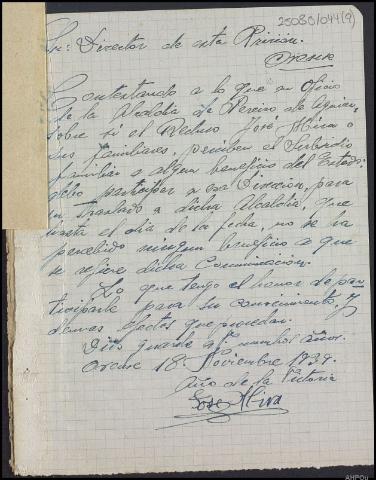 25080/044(9)
Sr: Director de esta Prision.
Orense
Contestando a lo que en Oficio
de la Alcaldia de Pereiro de Aguiar,
sobre si el Recluso José Mira o
sus familiares, perciben el Subsidio
familiar o algun beneficio del Estado:
debo participar a esa Dirección, para
su traslado a dicha Alcaldia, que
hasta el dia de la fecha, no se ha
percibido ningun beneficio a que
se refiere dicha Comunicacion.
Lo que tengo el honor de par
ticiparle para su conocimiento y
demas efectos que procedan.
Dios guarde a Vd muchos años.
Orense 18- Noviembre 1939.
Año de la Victoria
José Mira
AHPOu